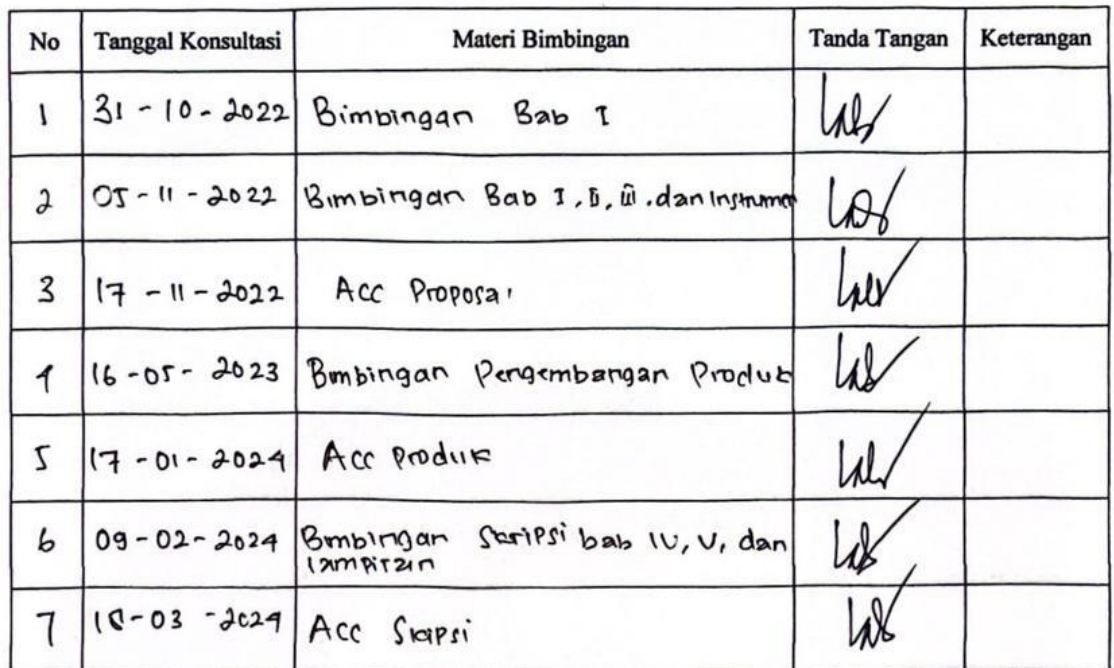 No Tanggal Konsultasi Materi Bimbingan Tanda Tangan Keterangan
1 31-10-2022 Bimbingan Bab I
2 05-11-2022 Bimbingan Bab I, II, III. dan Instrumen
3 17-11-2022 Acc Proposal
4 16-05-2023 Bimbingan Pengembangan Produk
5 17-01-2024 Acc Produk
6 09-02-2024 Bimbingan Skripsi bab IV, V, dan
lampiran
7 Acc Skripsi